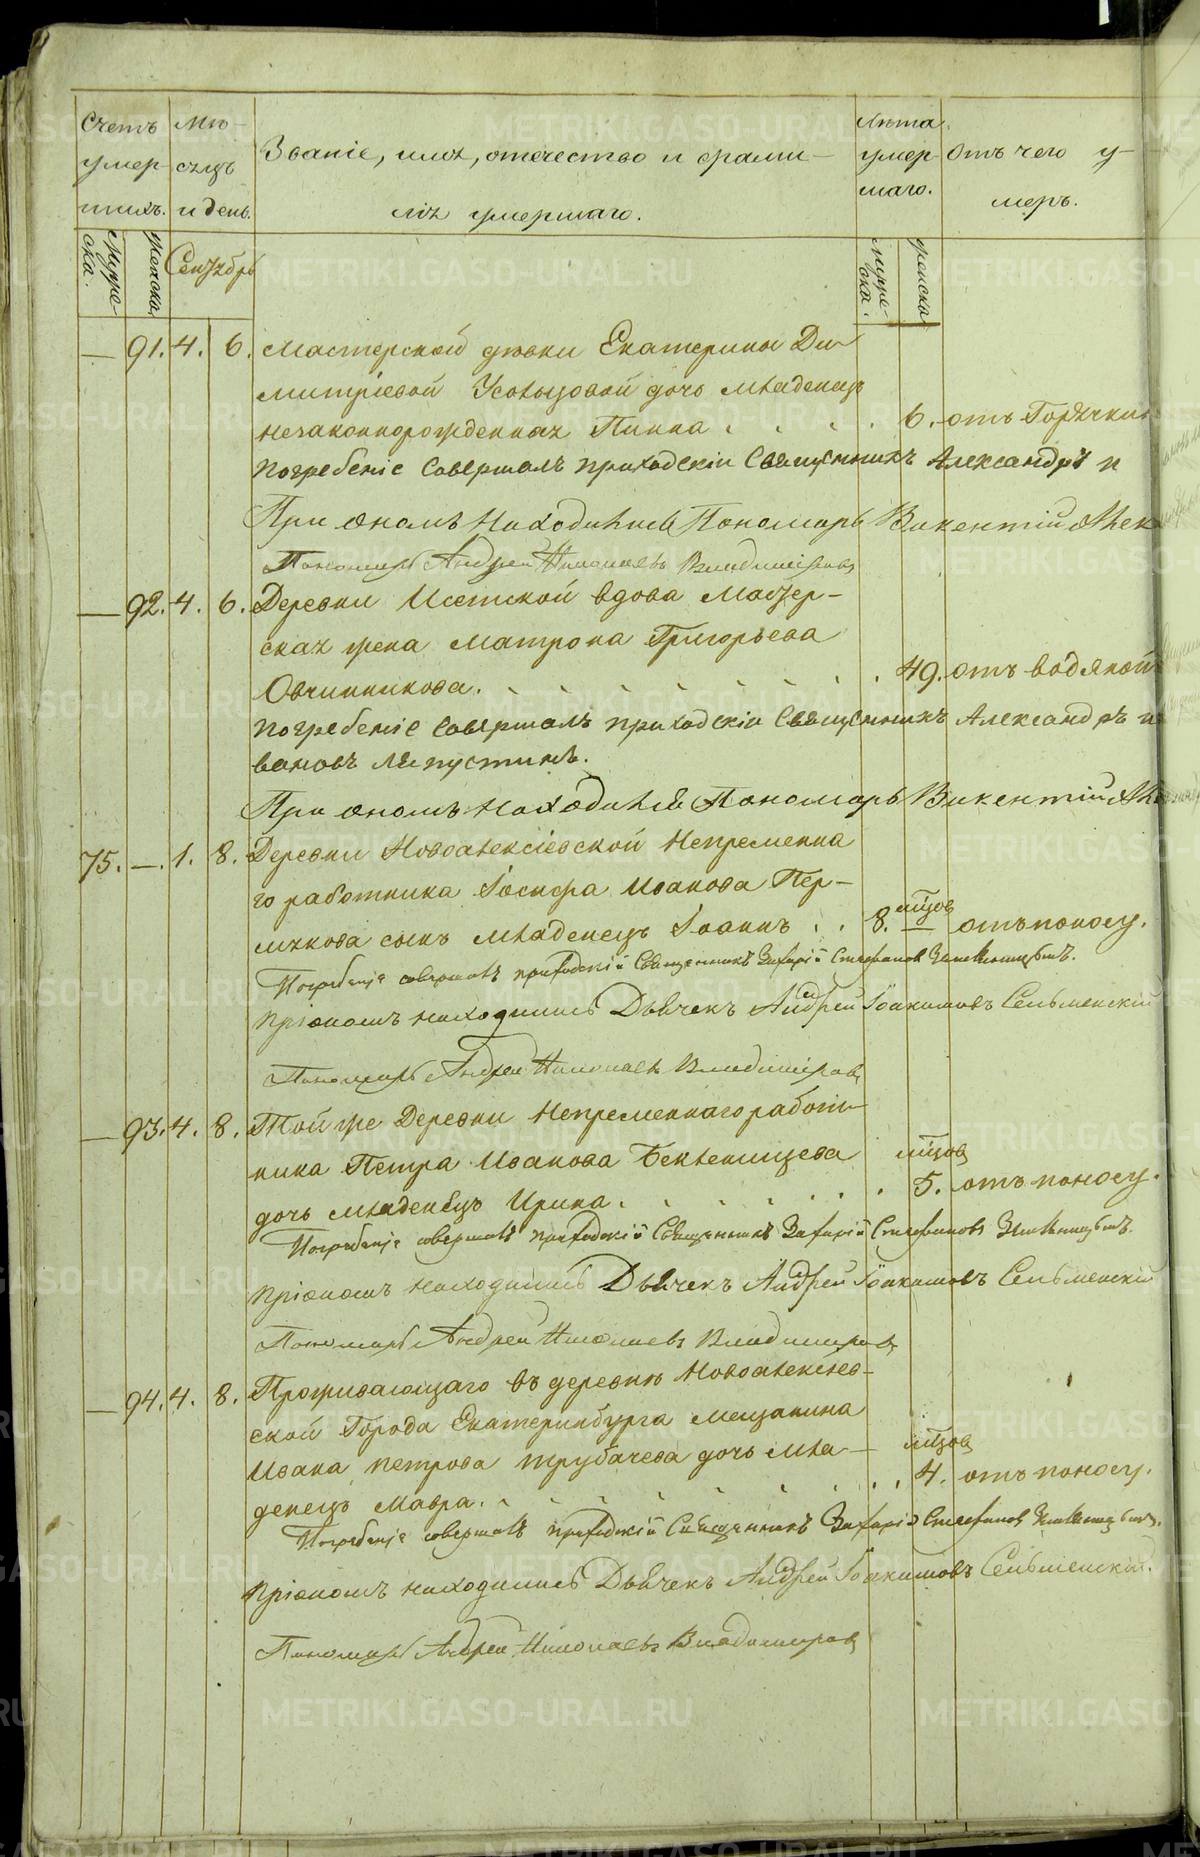 Счетъ умер- шихъ.
Мѣ- сяцъ и день.
Званіе, имя, отчество и фами-
лія умершаго.
Лѣта умер- шаго.
Отъ чего у-
меръ.
Муже- ска.
Женска
Сентябрь
Муже- ска.
Женска
— 91. 4. 6. Мастерской дѣвки Екатерины Ди-
митріевой Усольцовой дочь младенецъ
незаконнорожденная Пинна . . . . 6. отъ Горячки
Погребеніе совершалъ приходскіи Священникъ Александръ И
При ономъ Находились Пономарь Викентій Алек
Пономарь Андрей Николаевъ Владиміровъ
— 92. 4. 6. Деревни Исетской вдова Мастер-
ская жена Матрона Григорьева
Овчинникова. . . . . . . . 49. отъ водяной
Погребеніе совершалъ приходскіи Священникъ Александръ И
вановъ Ляпустинъ.
При ономъ находился Пономарь Викентій Ал
75. —. 1. 8. Деревни Новоалексіевской Непременна
го работника Іосифа Иванова Пер-
мякова сынъ младенецъ Іоаннъ . . 8. мѣсцов отъ поносу.
Погребеніе совершалъ приходскій Священникъ Захарій Стефановъ
При ономъ находились Дьячекъ Андрей Іоакимовъ Сельменскій
Пономарь Андрей Николаевъ Владиміровъ
— 93. 4. 8. Той же Деревни Непременнаго работ-
ника Петра Иванова Бекленищева мѣсцов
дочь младенецъ Ирина . . . . . . 5. отъ поносу.
Погребеніе совершалъ приходскій Священникъ Захарій Стефановъ
При ономъ находились Дьячекъ Андрей Іоакимовъ Сельменскій
Пономарь Андрей Николаевъ Владиміровъ
— 94. 4. 8. Проживающаго въ деревнѣ Новоалексіев-
ской Города Екатеринбурга мещанина
Ивана Петрова Трубачева дочь мла- мѣсцов
денецъ Мавра. . . . . . . . 4. отъ поносу.
Погребеніе совершалъ приходскій Священникъ Захарій Стефановъ
При ономъ находились Дьячекъ Андрей Іоакимовъ Сельменскій.
Пономарь Андрей Николаевъ Владиміровъ
METRIKI.GASO-URAL.RU